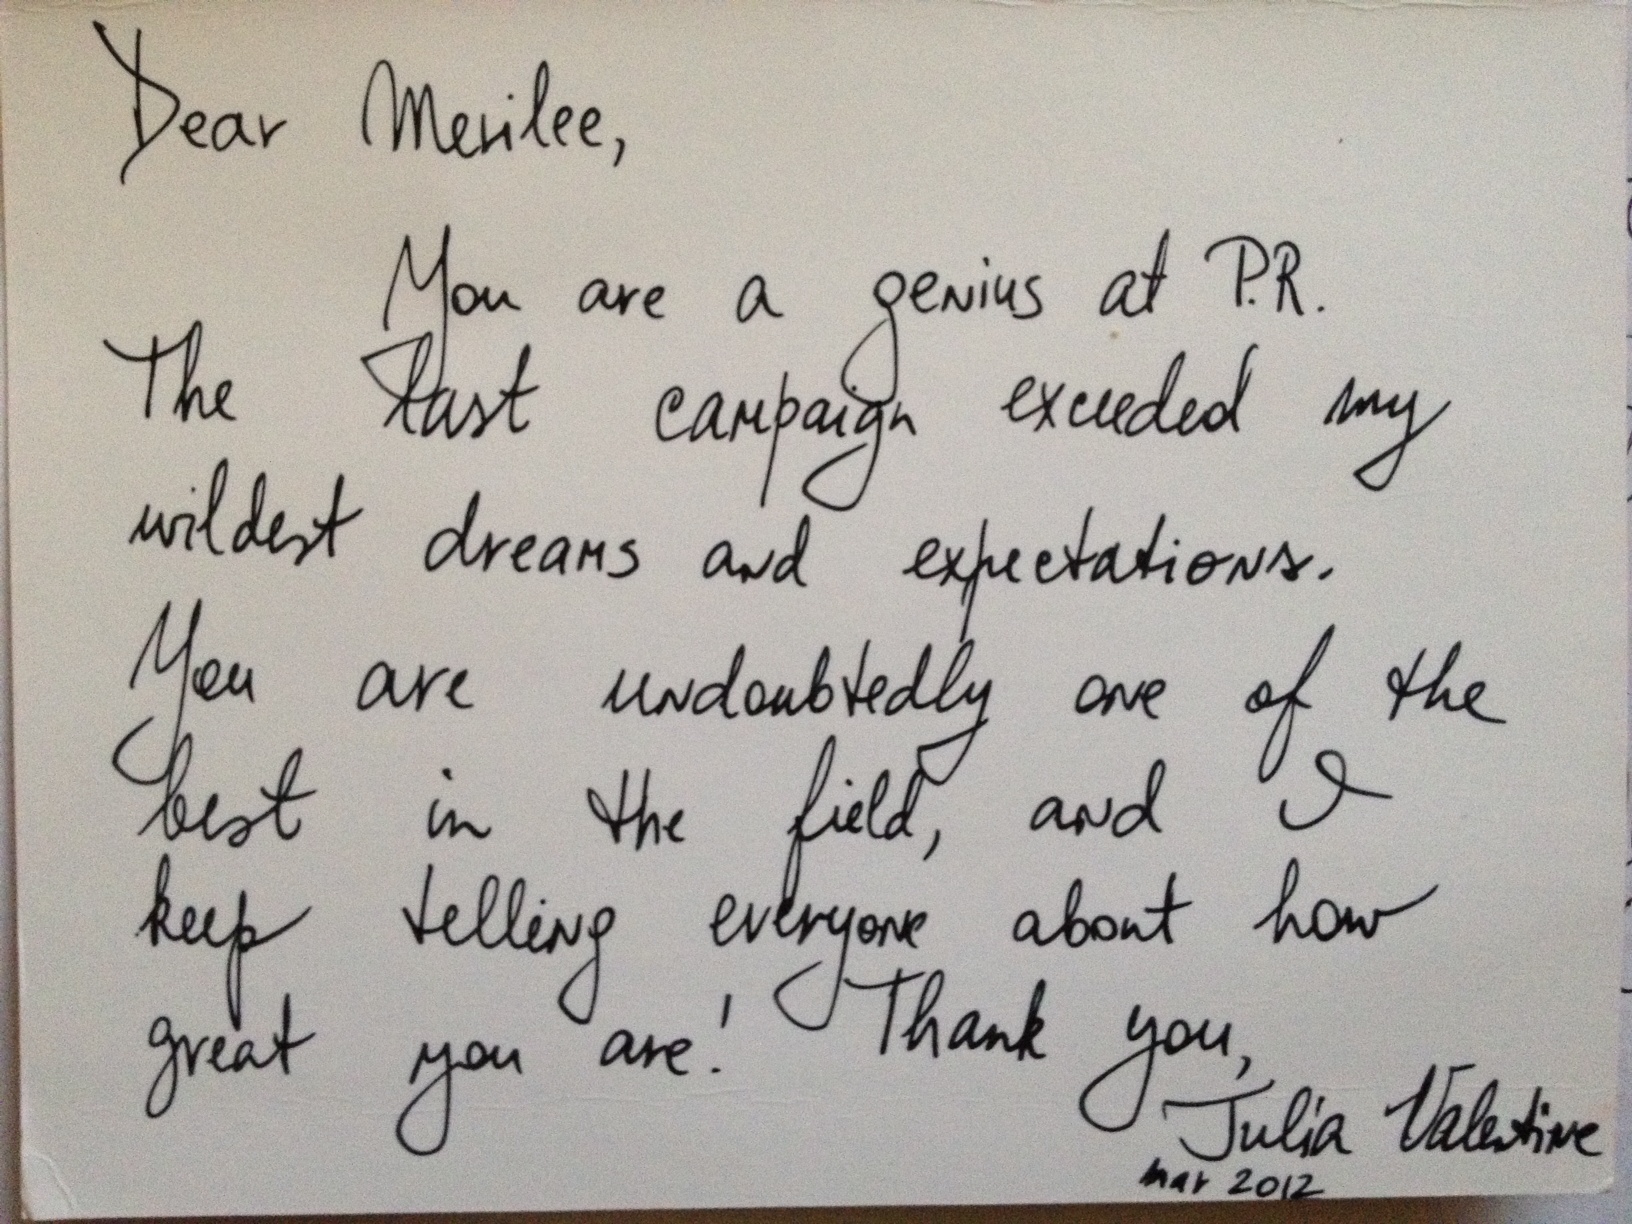 Dear Merilee,
You are a genius at P.R.
The last campaign exceeded my
wildest dreams and expectations.
You are undoubtedly one of the
best in the field, and I
keep telling everyone about how
great you are! Thank you,
Julia Valentine
mar 2012